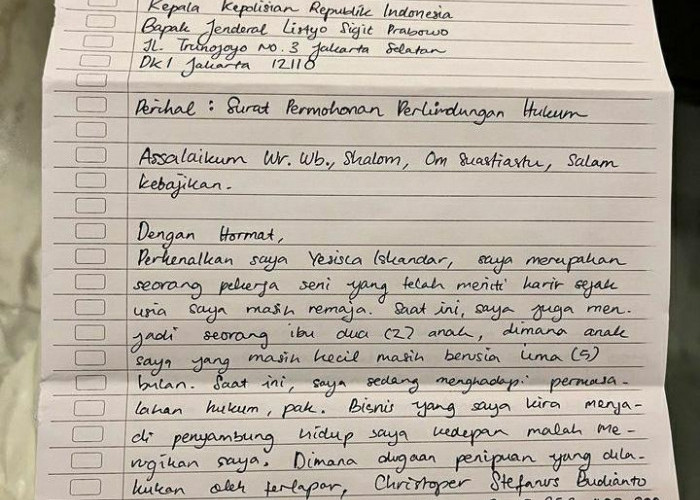 Kepala Kepolisian Republik Indonesia
Bapak Jenderal Listyo Sigit Prabowo
JL. Trunojoyo No. 3 Jakarta Selatan
DKI Jakarta 12110
Perihal : Surat Permohonan Perlindungan Hukum
Assalaikum Wr. Wb., Shalom, Om Suastiastu, Salam
kebajikan.
Dengan Hormat,
Perkenalkan saya Yesisca Iskandar, saya merupakan
seorang pekerja seni yang telah meniti karir sejak
usia saya masih remaja. Saat ini, saya juga men-
jadi seorang ibu dua (2) anak, dimana anak
saya yang masih kecil masih berusia lima (5)
bulan. Saat ini, saya sedang menghadapi permasa-
lahan hukum, pak. Bisnis yang saya kira menja-
di penyambung hidup saya kedepan malah me-
rugikan saya. Dimana dugaan penipuan yang dila-
kukan oleh terlapor, Christoper Stefanus Budianto